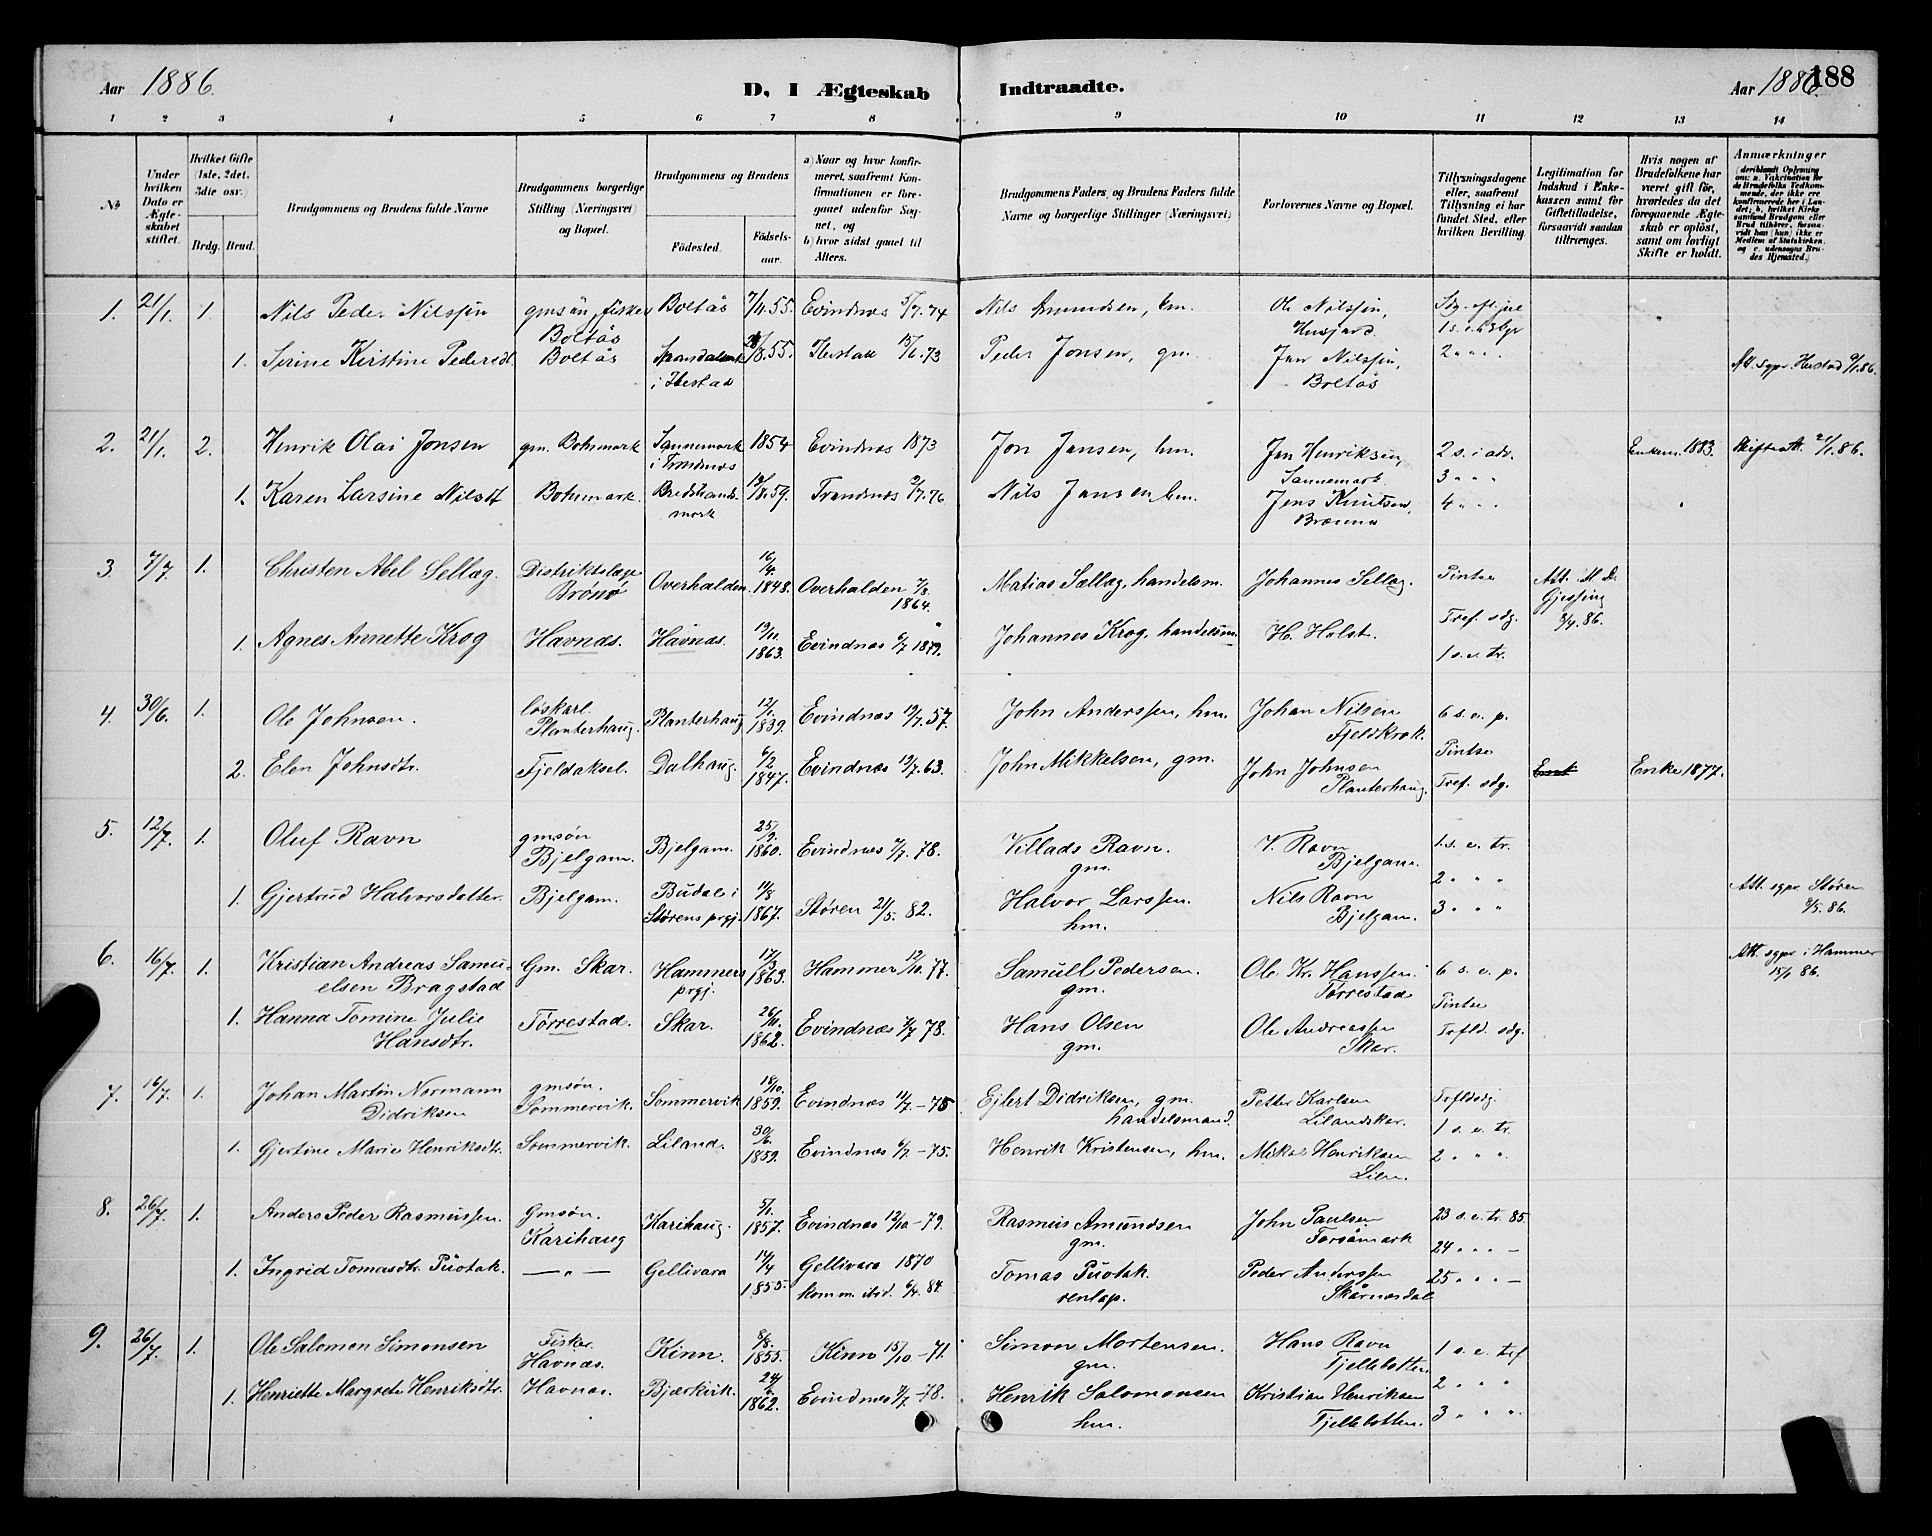 Aar 1886.
D. I Ægteskab
Indtraadte.
Aar 1886.
188
1 2 3 4 5 6 7 8 9 10 11 12 13 14
№
Under hvilken Dato er Ægteskabet stiftet.
Hvilket Gifte (1ste, 2det, 3die osv.)
Brdg. Brud.
Brudgommens og Brudens fulde Navne
Brudgommens borgerlige Stilling (Næringsvei) og Bopæl.
Brudgommens og Brudens
Födested.
Födselsaar.
a) Naar og hvor konfirmeret, saafremt Konfirmationen er foregaaet udenfor Sognet, og
b) hvor sidst gaaet til Alters.
Brudgommens Faders, og Brudens Faders fulde Navne og borgerlige Stillinger (Næringsvei)
Forlovernes Navne og Bopæl.
Tillysningsdagene eller, saafremt Tillysning ei har fundet Sted, efter hvilken Bevilling.
Legitimation for Indskud i Enkekassen samt for Giftetilladelse, forsaavidt saadan tiltrænges.
Hvis nogen af Brudefolkene har været gift för, hvorledes da det foregaaende Ægteskab er oplöst, samt om lovligt Skifte er holdt.
Anmærkninger
(deriblandt Oplysning om: a. Vakcination for de Brudefolks Vedkommende, der ikke ere konfirmerede her i Landet; b. hvilket Kirkesamfund Brudgom eller Brud tilhörer, forsaavidt han (hun) ikke er Medlem af Statskirken, og c. udensogns Brudes Hjemsted.)
1. 21/1. 1. Nils Peder Nilssen gmsön, fisker Boltås Boltås 7/11.55. Evindnes 5/7.74 Nils Amundsen, hm. Ole Nilssen,
1. Serine Kirstine Pedersdt. Boltås i Ibestad /8.55. Ibestad 15/6.73 Peder Jonsen, gm. Jen Nilssen, Boltås 2 " " Att. sgpr. Ibestad 9/1.86.
2. 21/1. 2. Henrik Olai Jonsen gm. Bohmark Sannemark i Trondenes 1854 Evindnes 1873 Jon Jensen, hm. Jon Henriksen, Sannemark. 2 s. i adv. Enkem. 1883. Skifteatt. 21/1.86.
1. Karen Larsine Nilsdt Bohmark. Bredstrandsmork 12/8.59. Trondnes 2/7.76 Nils Jansen hm. Jens Knutsen, 3 " " 4 " "
3. 7/7. 1. Christen Abel Sellæg. Distriktslæge Brönö Overhalden. 16/4. 1848. Overhalden 7/8. 1864. Matias Sellæg, handelsm. Johannes Sellæg. Pintse Att. M. D. Gjessing 3/4.86.
1. Agnes Annette Krog Havnæs. Havnæs. 19/11. 1863. Evindnæs 6/7 1879. Johannes Krog, handelsm. H. Holst. Tref. sdg. 1 s. e. tr.
4. 30/6. 1. Ole Johnsen. löskarl. Planterhaug. Planterhaug 12/1. 1839. Evindnæs 19/7.57. John Anderssen, hm. Johan Nilsen Fjeldkrok. 6 s. e. p.
2. Elen Johnsdtr. Fjeldaksel. Dalhaug. 6/2 1847. Evindnæs 19/7.63. John Mikkelsen, gm. John Johnsen Planterhaug. Pintse Tref. sdg. Enke 1877.
5. 12/7. 1. Oluf Ravn gmsön Bjelgam. Bjelgam. 25/9. 1860. Evindnæs 7/7.78. Villads Ravn. gm. V. Ravn Bjelgam. 1. s. e. tr.
1. Gjertrud Halvorsdatter. Bjelgam. Budal i Störens prgj. 11/8 1867. Stören 21/5. 82. Halvor Larssen. hm. Nils Ravn Bjelgam. 2 " " " 3 " " Att. sgpr. Stören 8/5.86.
6. 16/7. 1. Kristian Andreas Samuelsen Bragstad Gm. Skar. Hammers prgj. 17/3 1863. Hammer 19/10.77. Samüel Pedersen. gm. Ole Kr. Hanssen Torrestad 6 s. e. p. Att. sgpr i Hammer 15/1 86.
1. Hanna Tomine Julie Hansdtr. Torrestad. Skar. 26/11. 1862. Evindnæs 7/7 78. Hans Olsen gm. Ole Andreassen Skar. Pintse Trfld. sdg.
7. 16/7. 1. Johan Martin Normann Didriksen gmsön. Sommervik. Sommervik 18/10. 1859. Evindnæs 11/7.-75 Ejlert Didriksen, gm. handelsmand. Petter Karlsen Lilandskar. Trfldsdg.
1. Gjertine Marie Henriksdtr. Sommervik. Liland. 30/6. 1859. Evindnæs 11/7.-75. Henrik Kristensen, hm. Mikal Henriksen Lien. 1 s. e. tr. 2 " " "
8. 26/7. 1. Anders Peder Rasmussen. Gmsön. Karihaug Karihaug. 5/1. 1857. Evindnæs 12/10-79. Rasmus Amundsen gm. John Paulsen Forsåmark 23 s. e. tr. 85.
1. Ingrid Tomasdtr. Püotak. — " — Gellivara 14/4 1855. Gellivara 1870 komm. ibid. 6/4. 84. Tomas Püotak. renlap. Peder Anderssen Skårnesdal 24 " " — 25 " " —
9. 26/7. 1. Ole Salomon Simonsen Fisker Havnæs. Kinn. 8/8. 1855. Kinn 15/10-71. Simon Mortensen. gm. Hans Ravn Fjellebotten 1 s. e. trf
1. Henriette Margrete Henriksdtr. Havnæs. Bjerkvik. 24/ 1862. Evindnæs 7/7.-78. Henrik Salomonsen hm. Kristian Henriksen Fjellebotten. 2 " " " 3 " " "